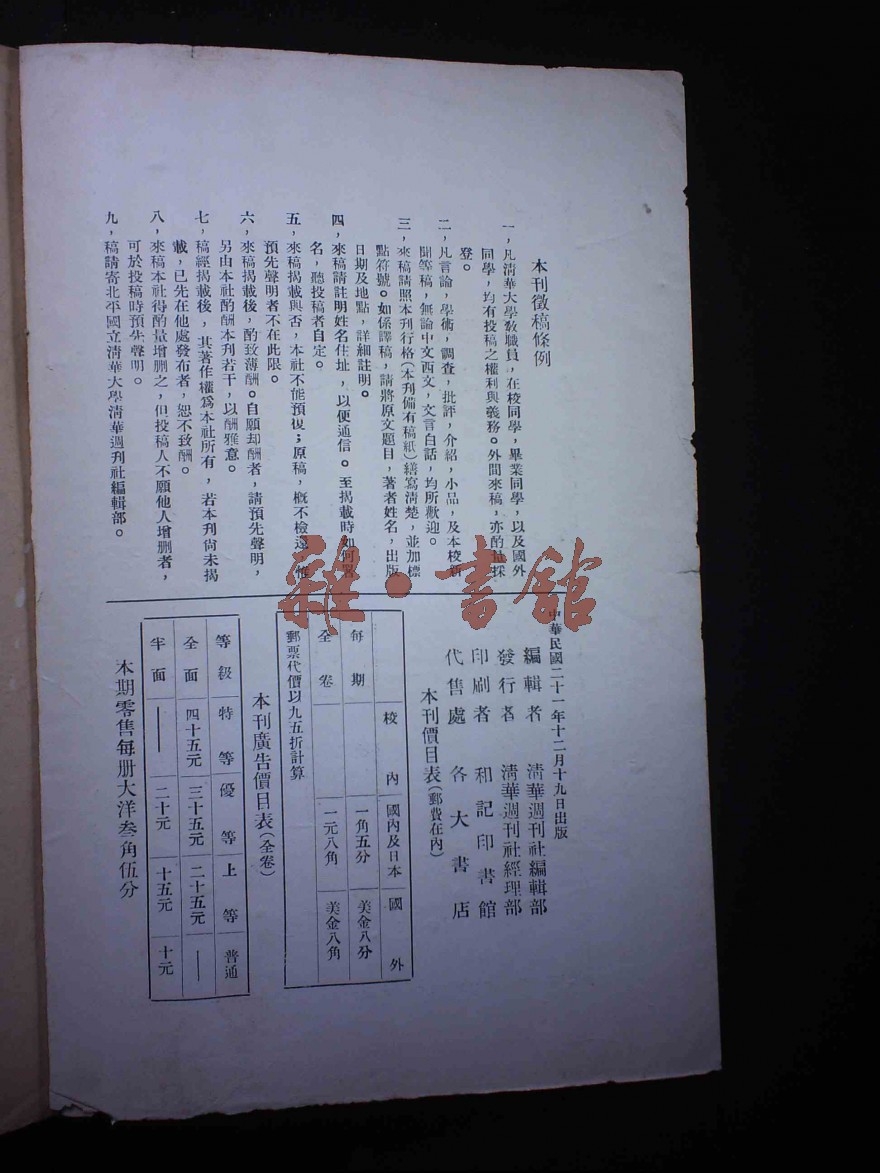 本刊徵稿條例
一，凡清華大學敎職員，在校同學，畢業同學，以及國外
同學，均有投稿之權利與義務。外間來稿，亦酌量採
登。
二，凡言論，學術，調查，批評，介紹，小品，及本校新
聞等稿，無論中文西文，文言白話，均所歡迎。
三，來稿請照本刊行格（本刊備有稿紙）繕寫清楚，並加標
點符號。如係譯稿，請將原文題目，著者姓名，出版
日期及地點，詳細註明。
四，來稿請註明姓名住址，以便通信。至揭載時如何署
名，聽投稿者自定。
五，來稿揭載與否，本社不能預復；原稿，槪不檢還，惟
預先聲明者不在此限。
六，來稿揭載後，酌致薄酬。自願却酬者，請預先聲明，
另由本社酌酬本刊若干，以酬雅意。
七，稿經揭載後，其著作權爲本社所有，若本刊尙未揭
載，已先在他處發布者，恕不致酬。
八，來稿本社得酌量增删之，但投稿人不願他人增删者，
可於投稿時預先聲明。
九，稿請寄北平國立清華大學清華週刊社編輯部。
雜·書館
中華民國二十一年十二月十九日出版
編輯者 清華週刊社編輯部
發行者 清華週刊社經理部
印刷者 和記印書館
代售處 各大書店
本刊價目表（郵費在內）
校內 國內及日本 國外
每期 一角五分 美金八分
全卷 一元八角 美金八角
郵票代價以九五折計算
本刊廣告價目表（全卷）
等級 特等 優等 上等 普通
全面 四十五元 三十五元 二十五元 ——
半面 —— 二十元 十五元 十元
本期零售每册大洋叁角伍分